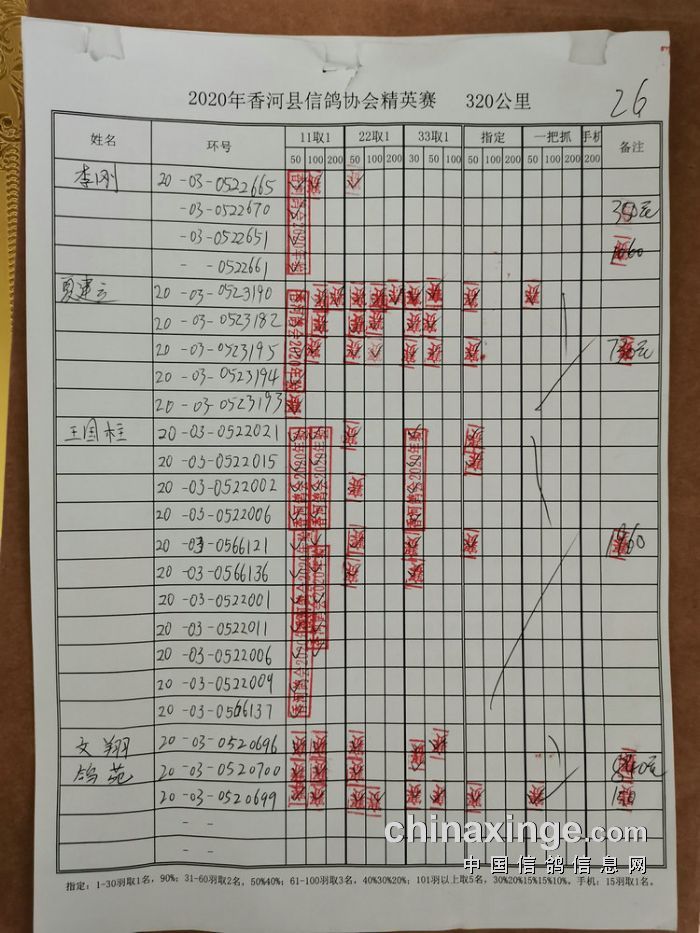 2020年香河县信鸽协会精英赛 320公里
26
姓名 环号 11取1 22取1 33取1 指定 一把抓 手机 备注
50 100 200 50 100 200 30 50 100 50 100 200 50 100 200 200
李刚 20-03-0522665
-03-0522670
-03-0522651
- -0522661
夏建云 20-03-0523190
20-03-0523182
20-03-0523195
20-03-0523194
20-03-0523193
王国柱 20-03-0522021
20-03-0522015
20-03-0522002
20-03-0522006
20-03-0566121
20-03-0566136
20-03-0522001
20-03-0522011
20-03-0522006
20-03-0522009
20-03-0566137
文翔 20-03-0520696
鸽苑 20-03-0520700
20-03-0520699
- -
- -
chinaxinge.com
中国信鸽信息网
指定：1-30羽取1名，90%；31-60羽取2名，50%40%；61-100羽取3名，40%30%20%；101羽以上取5名，30%20%15%15%10%。手机：15羽取1名。